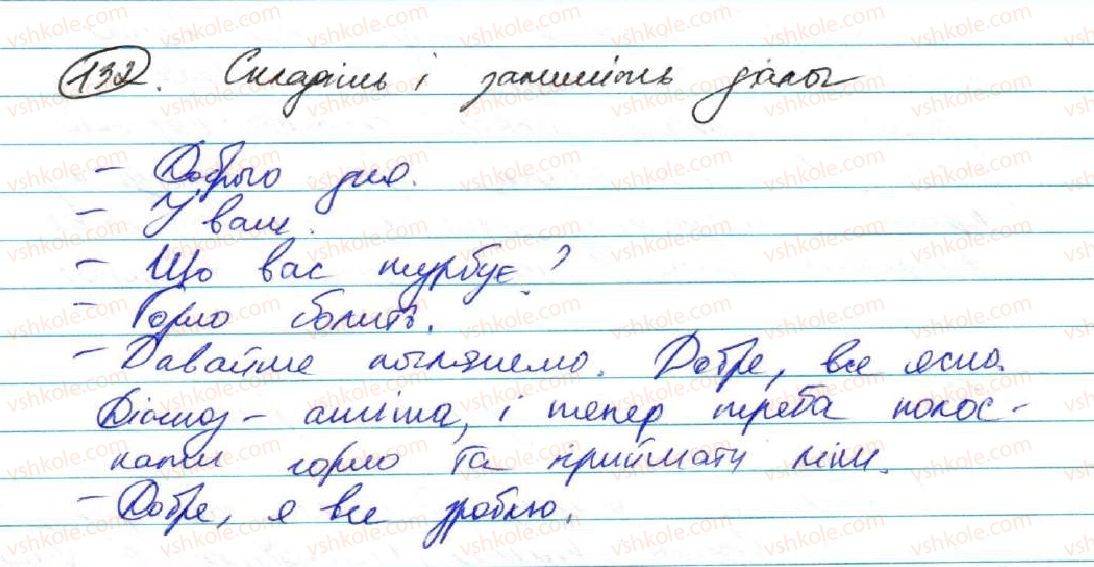 132. Складіть і запишіть діалог
- Доброго дня.
- І вам.
- Що вас турбує?
- Горло болить.
- Давайте поглянемо. Добре, все ясно.
Діагноз - ангіна, і тепер треба полос-
кати горло та приймати ліки.
- Добре, я все зроблю.